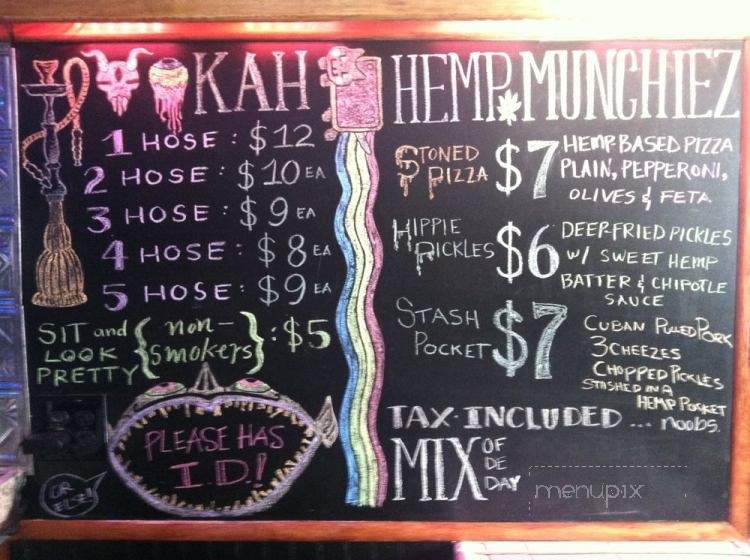 HOOKAH
1 HOSE : $12
2 HOSE : $10 EA
3 HOSE : $9 EA
4 HOSE : $8 EA
5 HOSE : $9 EA
SIT and LOOK PRETTY {non-smokers} : $5
PLEASE HAS
I.D.!
OR ELSE!
HEMP MUNCHIEZ
STONED PIZZA $7
HEMP-BASED PIZZA
PLAIN, PEPPERONI,
OLIVES & FETA
HIPPIE PICKLES $6
DEEP-FRIED PICKLES
W/ SWEET HEMP
BATTER & CHIPOTLE
SAUCE
STASH POCKET $7
CUBAN PULLED PORK
3 CHEEZES
CHOPPED PICKLES
STASHED IN A
HEMP POCKET
TAX INCLUDED ... noobs.
MIX OF DE DAY
menupix